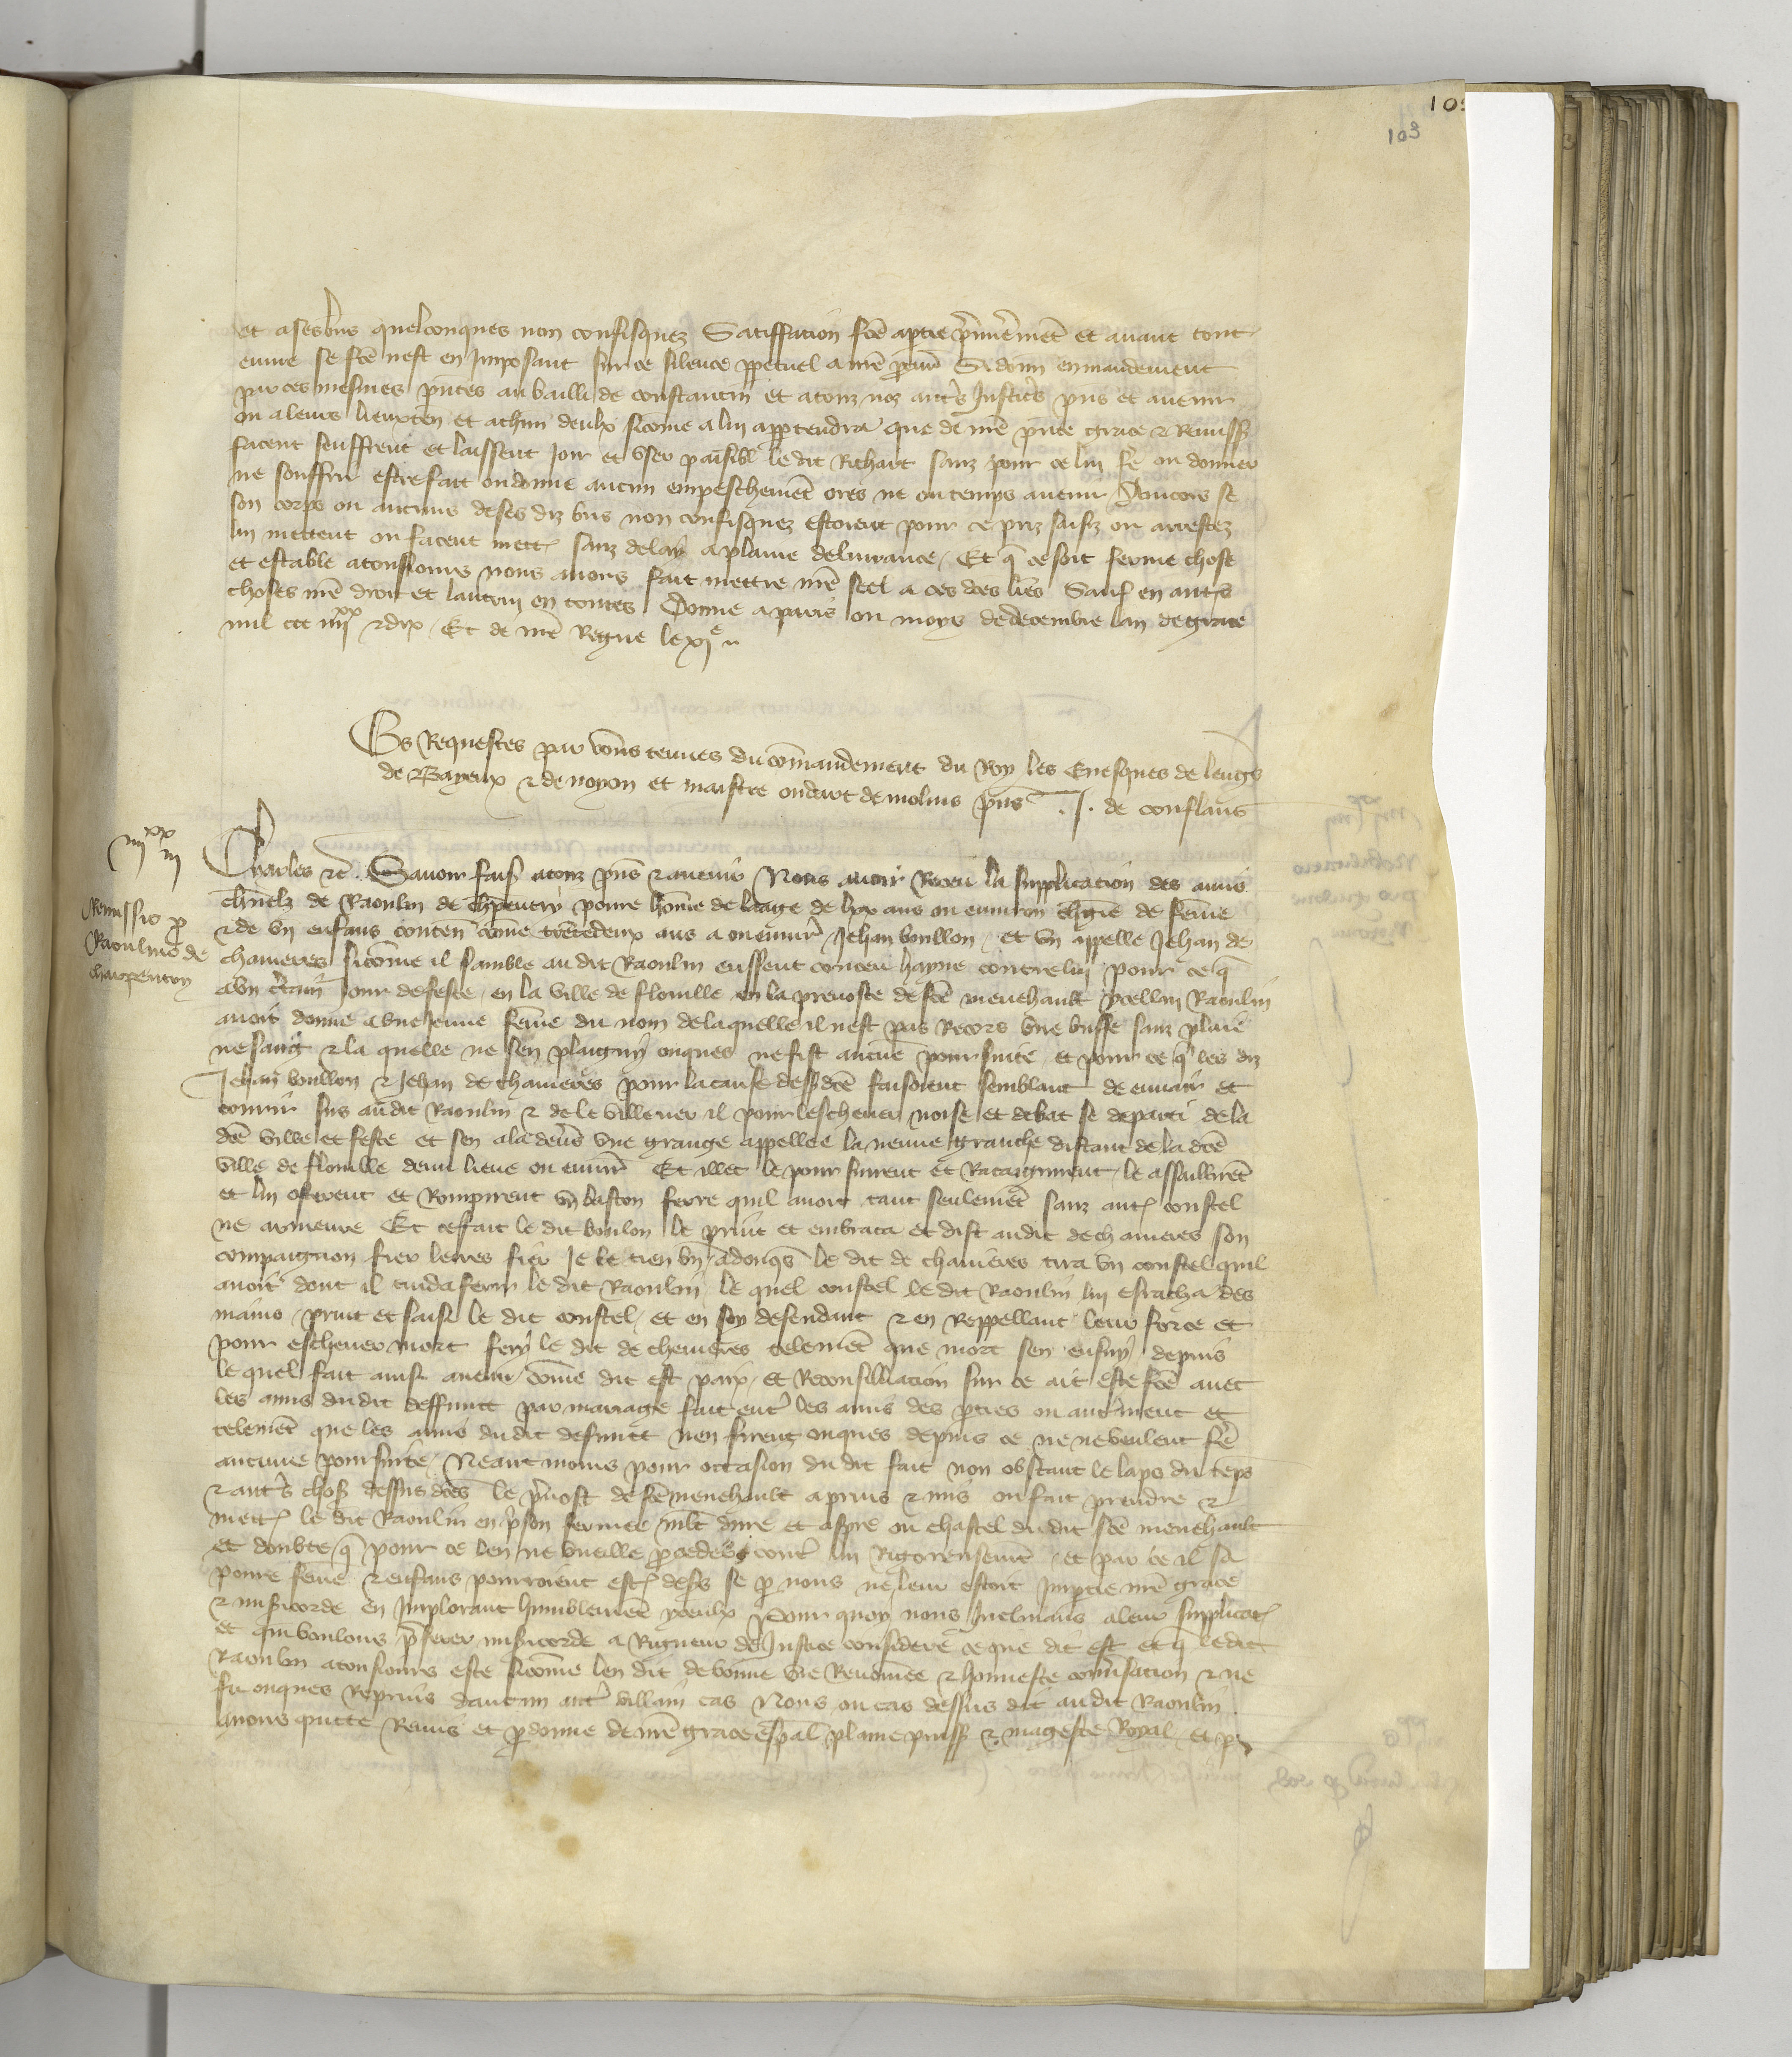 103
et a ses bns quelconques non confisquez Satiffacion fce a ptie pmieremet et avant tout
euvre se fce nest en Imposant sur ce silence ppetuel a nre procur Si donn en mandement
par ces mesmes pntes au bailli de constantin et a touz noz autrs Justicrs pns et avenir
ou a leurs lieuxten et a chun deulx sicome a lui apptendra que de nre pnte grace & Remiss
facent seuffrent et laissent Joir et User paisible le dit Richart sanz pour ce lui fe ou donner
ne souffrir estre fait ou donne aucun empeschemet ores ne ou temps avenir Aincois se
son corps ou aucuns de ses diz bns non confisquez estoient pour ce priz saisiz ou arrestez
lui mettent ou facent mettr sanz delay a plaine delivrance Et q ce soit ferme chose
et estable a tousjours nous avons fait mettre nre seel a ces dces lres Sauf en autrs
choses nre droit et lautrui en toutes Donne a paris ou moys de decembre lan de grace
mil ccc iiii xx & dix Et de nre Regne le xi e
Es Requestes par vous tenues du comandement du Roy les Evesques de lengrs
de Bayeux & de noyon et maistre oudart de molins pns J. de conflans
iiii xx iii
Remissio p
Raoulino de
charpentry
Charles &c Savoir fais a touz pns & avenir Nous avoir Receu la supplicacion des amis
charnelz de Raoulin de chpentry povre home de laage de lxx ans ou environ chgie de feme
& de vn enfans conten come trentedeux ans a ou envir Jehan boullon et vn appelle Jehan de
chameres sicome il samble au dit Raoulin eussent conceu hayne contre lui pour ce q
a vn crtain Jour de feste en la ville de floville en la prevoste de sce menehault ycellui Raoulin
avoit donne a vne Jeune feme du nom de laquelle il nest pas Recors vne buffe sanz plaie
ne sang & la quelle ne sen plaigny onques ne fist aucune poursuite et pour ce q les diz
Jehan boullon & Jehan de chameres pour la cause dessdce faisoient semblant de envair et
courir sus au dit Raoulin & de le villener il pour eschever noise et debat se departi de la
dce ville et feste et sen ala devrs vne grange appellee la neuve granche distant de la dce
ville de floville demi lieue ou envir Et illec le poursuirent et Rataignirent le assailliret
et lui osterent et Rompirent vn baston ferre quil avoit tant seulemet sanz autr coustel
ne armeure Et ce fait le dit boulon le print et embraca et dist au dit de chameres son
compaignon fier le res fier Je le tien bn Adonqs le dit de chameres tira vn coustel quil
avoit dont il cuida ferir le dit Raoulin le quel coustel le dit Raoulin lui esracha des
mains print et saisi le dit coustel et en soy defendant & en Reppellant leur force et
pour eschever mort fery le dit de chemeres telemet que mort sen ensuy depuis
le quel fait ainsi avenu come dit est paix et Reconsilliacion sur ce ait este fce avec
les amis du dit deffunct par mariage fait entr les amis des pties ou autrment et
telemet que les amis du dit defunct nen firent onques depuis ce ne ne veulent fe
aucune poursuite Neantmoins pour occasion du dit fait non obstant le laps du teps
& autrs chos dessus dces le prvost de sce menehault a prins & mis ou fait prendre &
mettr le dit Raoulin en prson fermee mlt dure et aspre ou chastel du dit sce menehault
et doubte q pour ce len ne vueille proceder contr lui Rigoreusemt et par ce il sa
povre feme & enfans pourroient estr desers se p nous ne leur estoit Imptie nre grace
& misricorde en Implorant humblemet yceulx Pour quoy nous Inclinans a leur supplicac
et qui voulons prferer misricorde a Rigueur de Justice considere ce que dit est et q le dit
Raoulin a tousjours este sicome len dit de bonne vie Renomee & honneste convrsation & ne
fu onques Reprins daucun autr villain cas Nous ou cas dessus dit au dit Raoulin
avons quitte Remis et pdonne de nre grace espal plaine puiss & mageste Royal et p